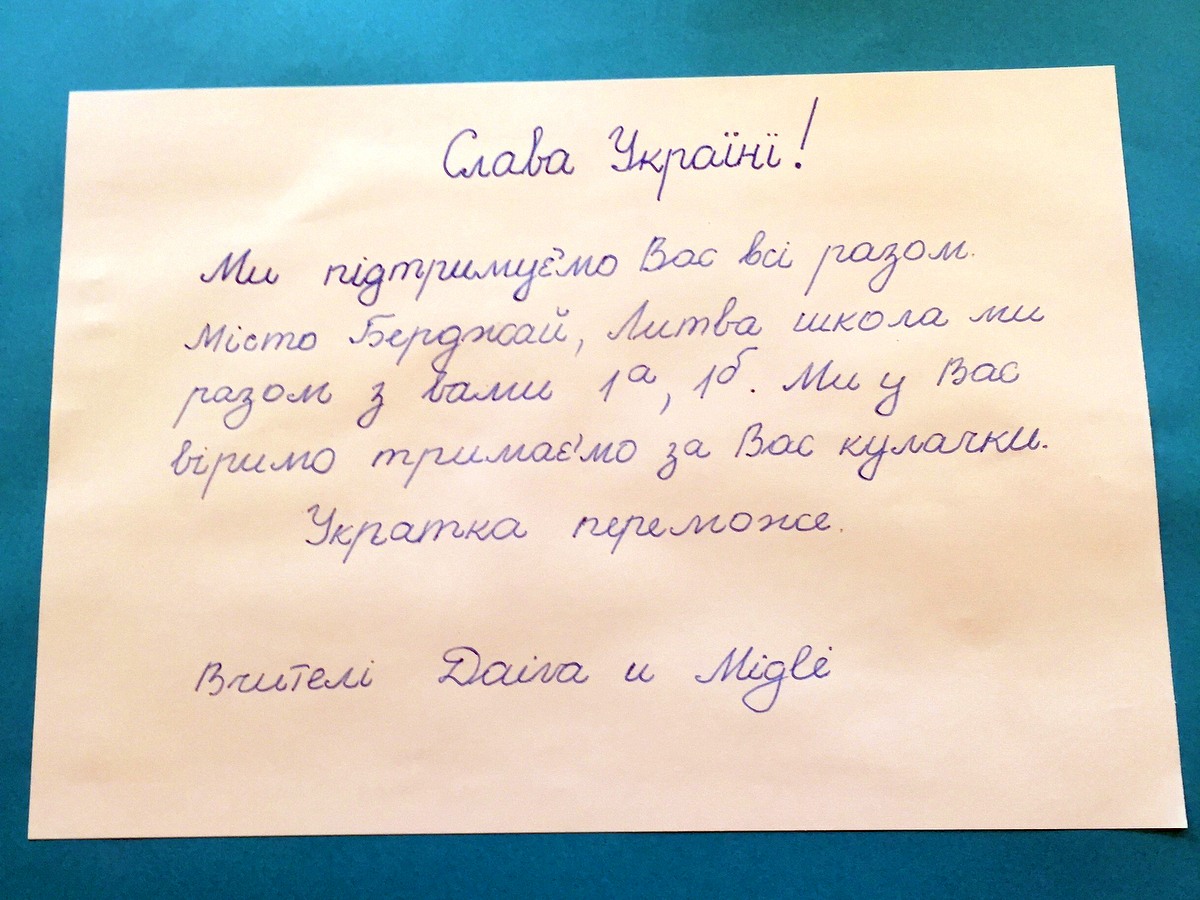 Слава Україні!
Ми підтримуємо Вас всі разом.
Місто Берджай, Литва школа ми
разом з вами 1а, 1б. Ми у Вас
віримо тримаємо за Вас кулачки.
Укратка переможе.
Вчителі Daiva и Мідві